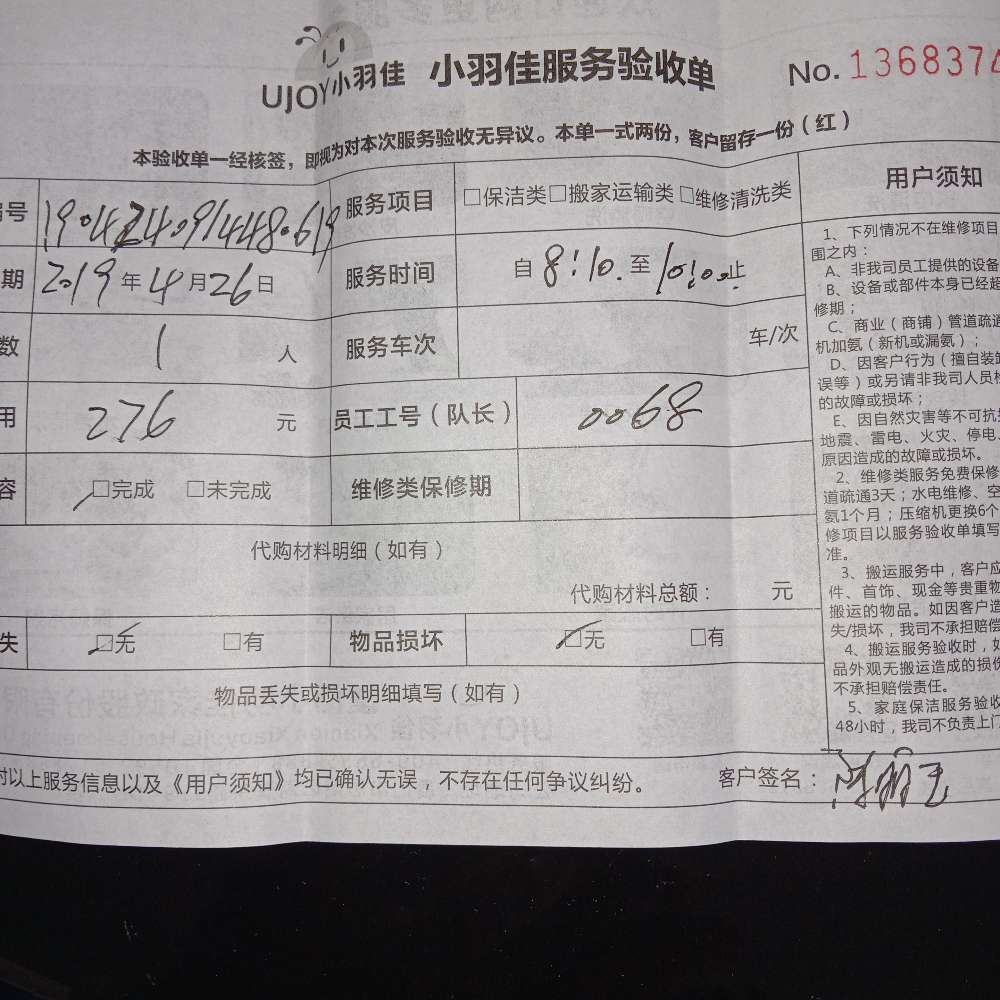 UJOY小羽佳 小羽佳服务验收单 No. 1368374
本验收单一经核签，即视为对本次服务验收无异议。本单一式两份，客户留存一份（红）
编号 服务项目 □保洁类 □搬家运输类 □维修清洗类
期 2019 年 4 月 26 日 服务时间 自 8:10. 至 10:00 止
数 1 人 服务车次 车/次
用 276 元 员工工号（队长） 0068
容 □完成 □未完成 维修类保修期
代购材料明细（如有）
代购材料总额： 元
失 □无 □有 物品损坏 □无 □有
物品丢失或损坏明细填写（如有）
对以上服务信息以及《用户须知》均已确认无误，不存在任何争议纠纷。 客户签名：
用户须知
1、下列情况不在维修项目
围之内：
A、非我司员工提供的设备
B、设备或部件本身已经超
修期；
C、商业（商铺）管道疏通
机加氨（新机或漏氨）；
D、因客户行为（擅自装卸
误等）或另请非我司人员检
的故障或损坏；
E、因自然灾害等不可抗
地震、雷电、火灾、停电、
原因造成的故障或损坏。
2、维修类服务免费保修
道疏通3天；水电维修、空
氨1个月；压缩机更换6个
修项目以服务验收单填写
准。
3、搬运服务中，客户应
件、首饰、现金等贵重物
搬运的物品。如因客户造
失/损坏，我司不承担赔偿
4、搬运服务验收时，如
品外观无搬运造成的损伤
不承担赔偿责任。
5、家庭保洁服务验收
48小时，我司不负责上门